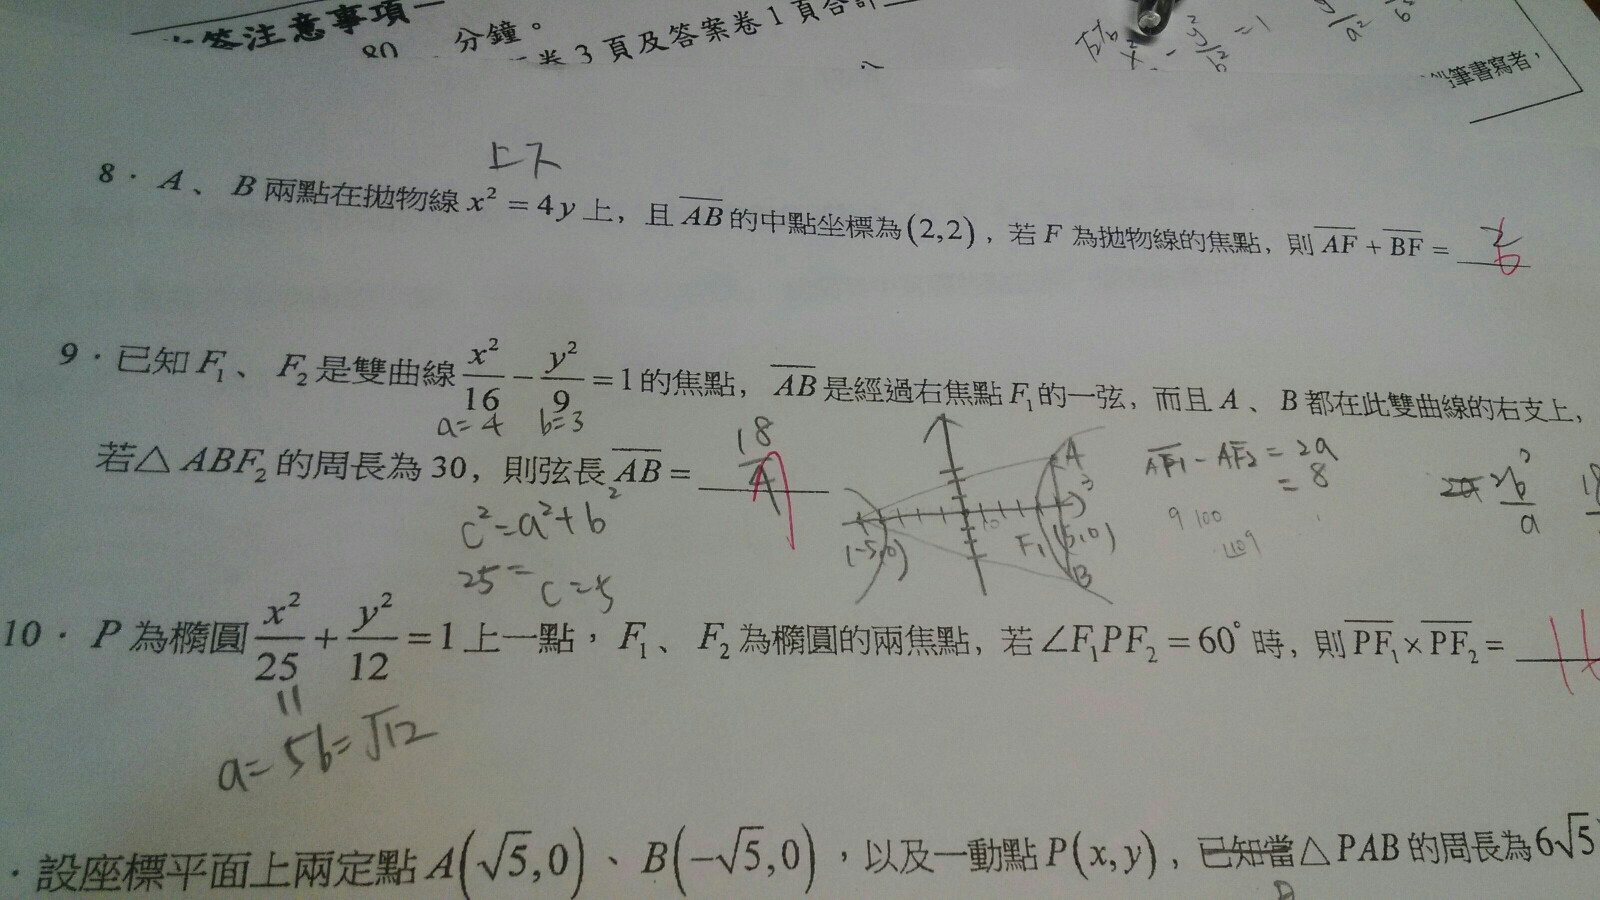 答注意事項
80 分鐘。
卷3頁及答案卷1頁合計
筆書寫者,
上下
8. A、B兩點在拋物線 x² = 4y 上,且 AB 的中點坐標為(2,2),若 F 為拋物線的焦點,則 AF + BF = 6
9. 已知 F₁、F₂是雙曲線 x²/16 − y²/9 = 1 的焦點,AB 是經過右焦點 F₁ 的一弦,而且 A、B 都在此雙曲線的右支上,
a=4 b=3
若△ABF₂ 的周長為 30,則弦長 AB = 18/4 7
AF₁ − AF₂ = 2a
= 8
2b²/a
c² = a² + b²
25 = c = 5
A
B
F₁ (5,0)
(−5,0)
9 100
109
10. P 為橢圓 x²/25 + y²/12 = 1 上一點,F₁、F₂ 為橢圓的兩焦點,若 ∠F₁PF₂ = 60° 時,則 PF₁ × PF₂ =
a = 5 b = √12
. 設座標平面上兩定點 A(√5,0)、B(−√5,0),以及一動點 P(x,y),已知當△PAB 的周長為 6√5